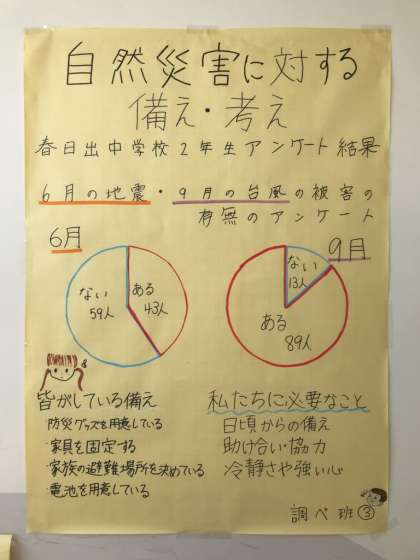 自然災害に対する
備え・考え
春日出中学校2年生アンケート結果
6月の地震・9月の台風の被害の
有無のアンケート
6月
9月
ない
59人
ある
43人
ない
13人
ある
89人
皆がしている備え
・防災グッズを用意している
・家具を固定する
・家族の避難場所を決めている
・電池を用意している
私たちに必要なこと
日頃からの備え
助け合い・協力
冷静さや強い心
調べ班③